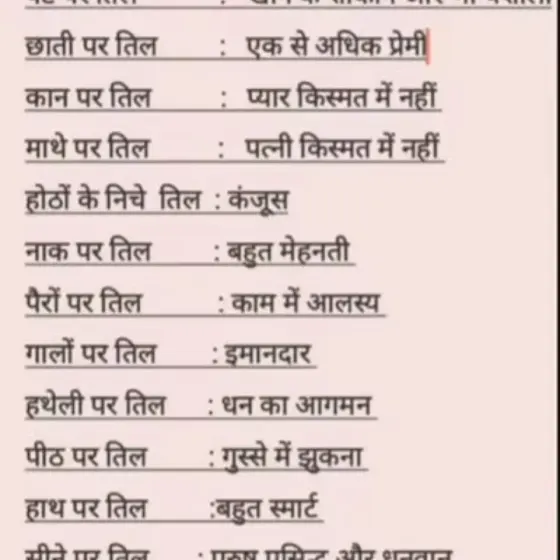 छाती पर तिल : एक से अधिक प्रेमी
कान पर तिल : प्यार किस्मत में नहीं
माथे पर तिल : पत्नी किस्मत में नहीं
होठों के निचे तिल : कंजूस
नाक पर तिल : बहुत मेहनती
पैरों पर तिल : काम में आलस्य
गालों पर तिल : इमानदार
हथेली पर तिल : धन का आगमन
पीठ पर तिल : गुस्से में झुकना
हाथ पर तिल :बहुत स्मार्ट
पर तिल : और धनवान